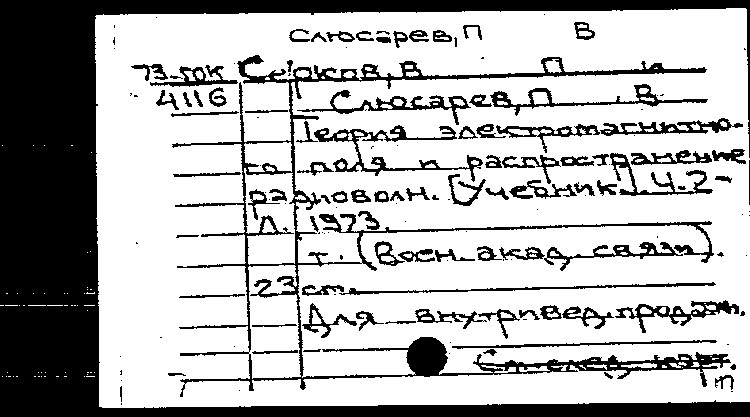 Слюсарев, П В
73-50К Серков, В П и
4116 Слюсарев, П. В.
Теория электромагнитно-
го поля и распространение
радиоволн. [Учебник]. Ч.2-
Л. 1973.
т. (Воен. акад. связи).
23 см.
Для внутривед. продажи.
См. след. карт.